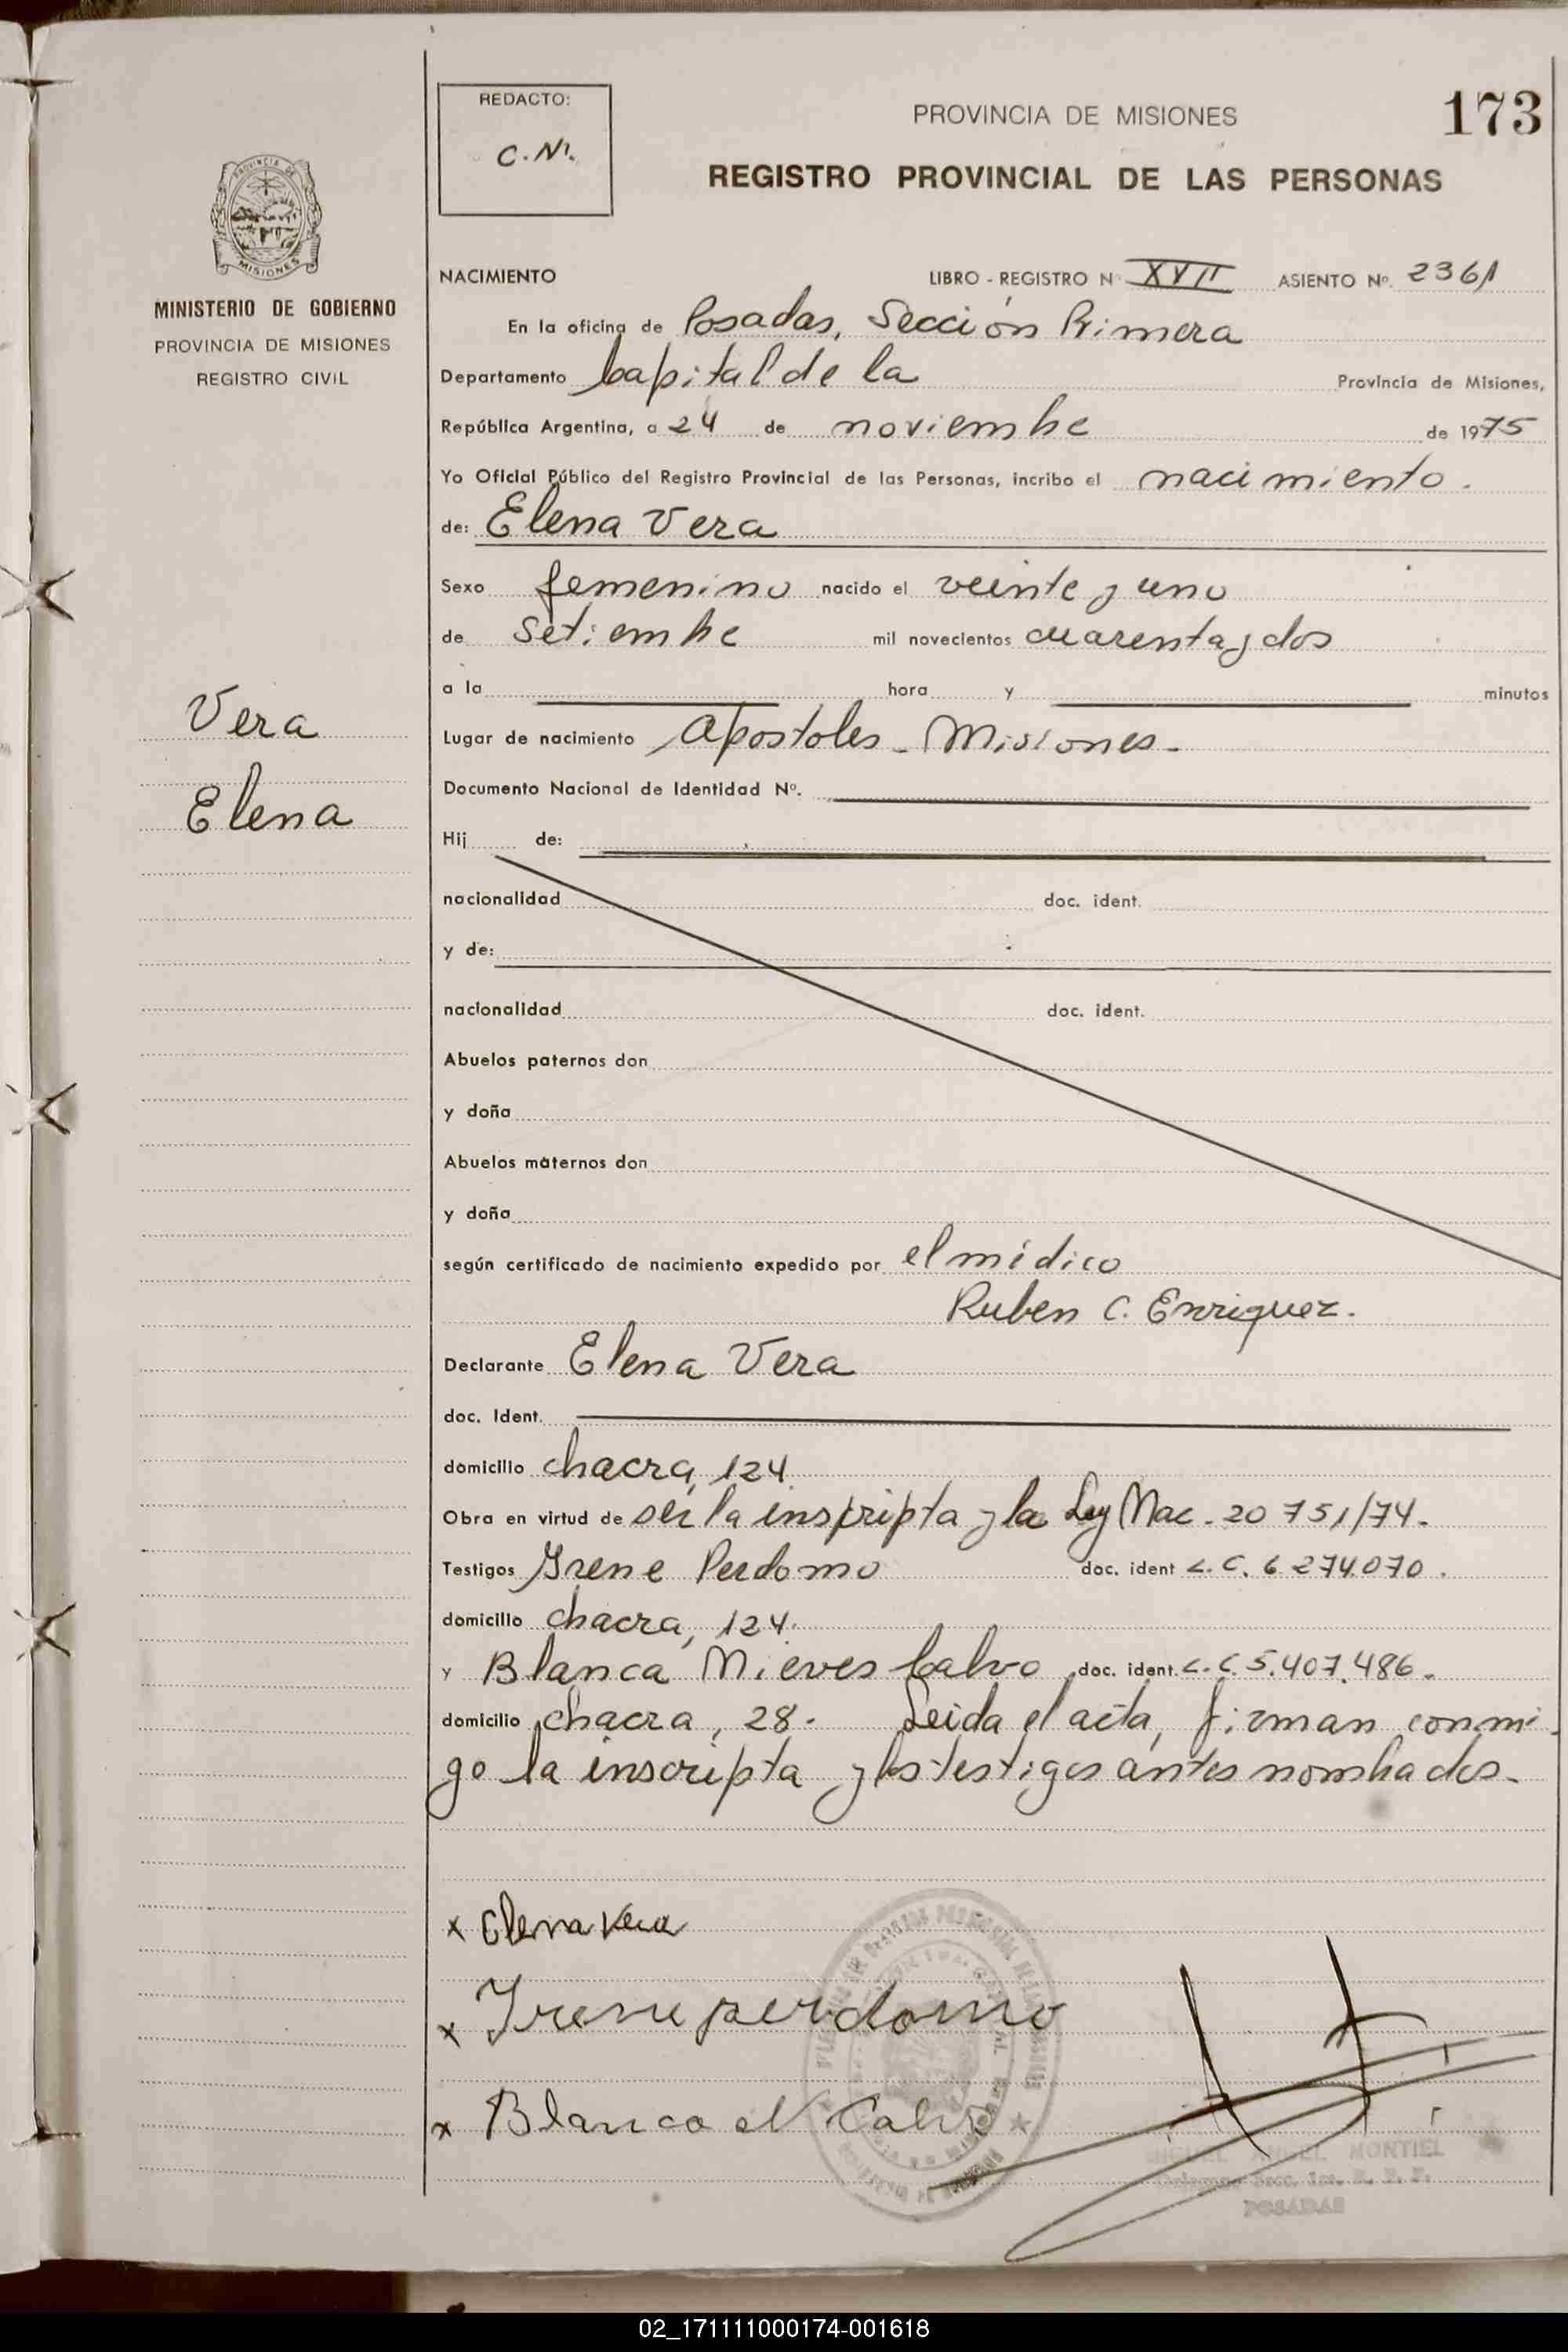 REDACTO:
C.N.
PROVINCIA DE MISIONES
173
REGISTRO PROVINCIAL DE LAS PERSONAS
PROVINCIA DE
MISIONES
MINISTERIO DE GOBIERNO
PROVINCIA DE MISIONES
REGISTRO CIVIL
Vera
Elena
NACIMIENTO LIBRO - REGISTRO Nº XVII ASIENTO Nº. 2361
En la oficina de Posadas, Sección Primera
Departamento Capital de la Provincia de Misiones,
República Argentina, a 24 de noviembre de 1975
Yo Oficial Público del Registro Provincial de las Personas, incribo el nacimiento.
de: Elena Vera
Sexo femenino nacido el veinte y uno
de setiembre mil novecientos cuarenta y dos
a la hora y minutos
Lugar de nacimiento Apostoles - Misiones -
Documento Nacional de Identidad Nº.
Hij de:
nacionalidad doc. ident.
y de:
nacionalidad doc. ident.
Abuelos paternos don
y doña
Abuelos maternos don
y doña
según certificado de nacimiento expedido por el médico
Ruben C. Enriquez.
Declarante Elena Vera
doc. Ident.
domicilio chacra, 124.
Obra en virtud de ser la inscripta y la Ley Nac. 20 751/74.
Testigos Irene Perdomo doc. ident L.C. 6.274.070.
domicilio chacra, 124.
y Blanca Nieves Calvo doc. ident. L.C. 5.407.486.
domicilio chacra, 28. Leida el acta, firman conmi-
go la inscripta y los testigos antes nombrados.
x Elena Vera
x Irene perdomo
x Blanca N Calvo
MIGUEL ANGEL MONTIEL
POSADAS
02_171111000174-001618